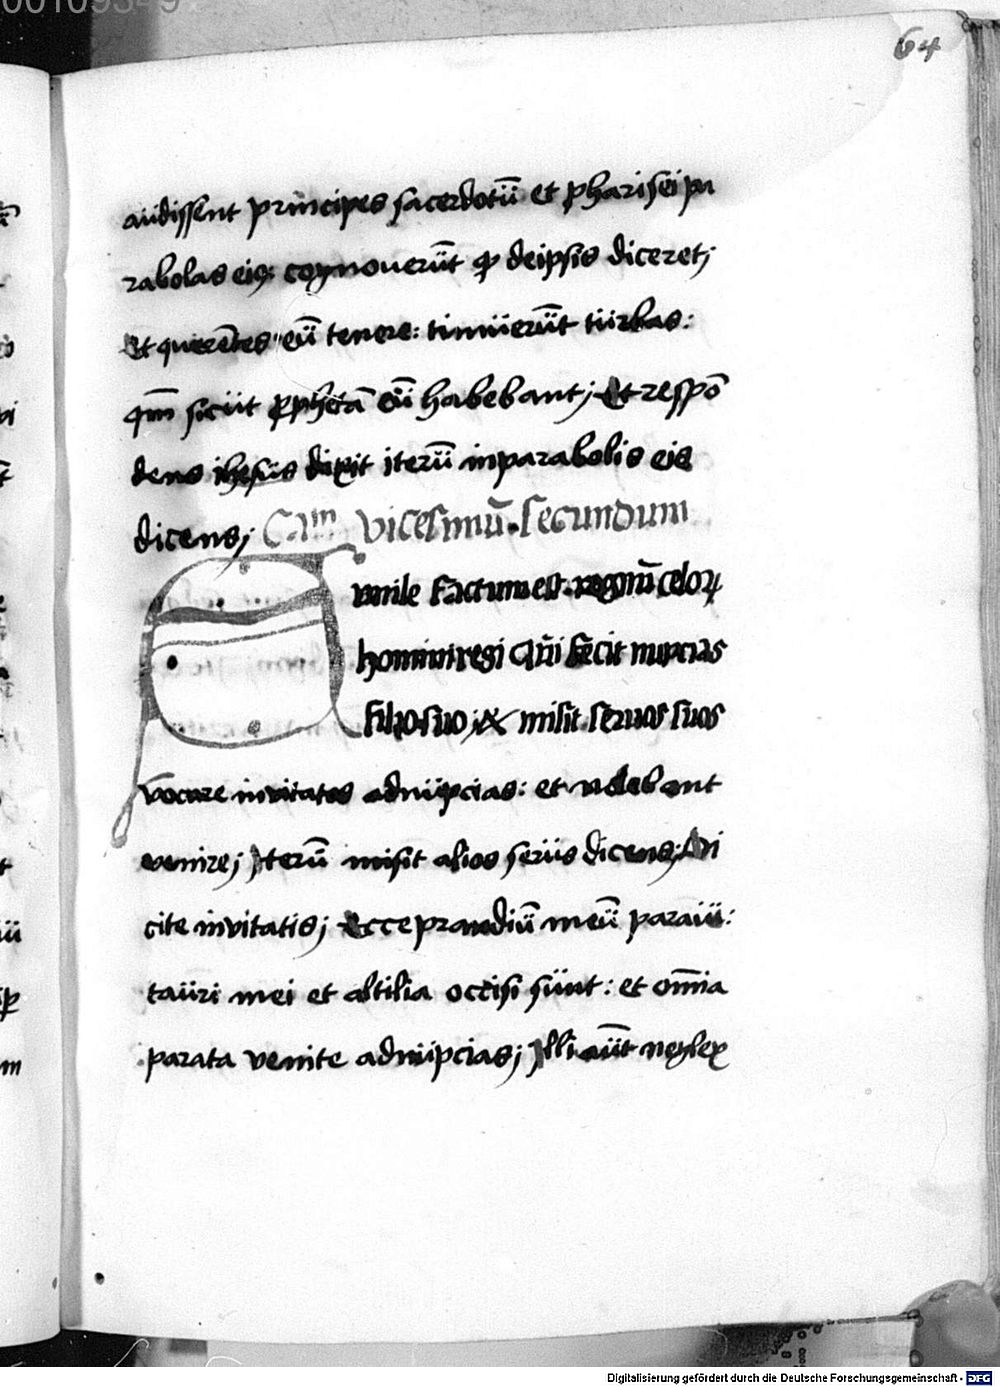 64
audissent principes sacerdotū et pharisei pa
rabolas eiꝰ: cognoverūt ꝙ deipsis diceret;
Et querētes eū tenere: timuerūt turbas:
qm̄ sicut ꝓphetā eū habebant; Et respō
dens ihesus dixit iterū inparabolis eis
dicens; Cam vicesimū. secundum
imile factum est. regnū celoꝝ
homini regi qui fecit nupcias
filio suo; & misit servos suos
vocare invitatos adnupcias: et nolebant
venire; Iterū misit alios servos dicens; Di
cite invitatis; Ecce prandiū meū paravi:
tauri mei et altilia occisi sunt: et om̄ia
parata venite adnupcias; Illi aūt neglex
Digitalisierung gefördert durch die Deutsche Forschungsgemeinschaft - DFG